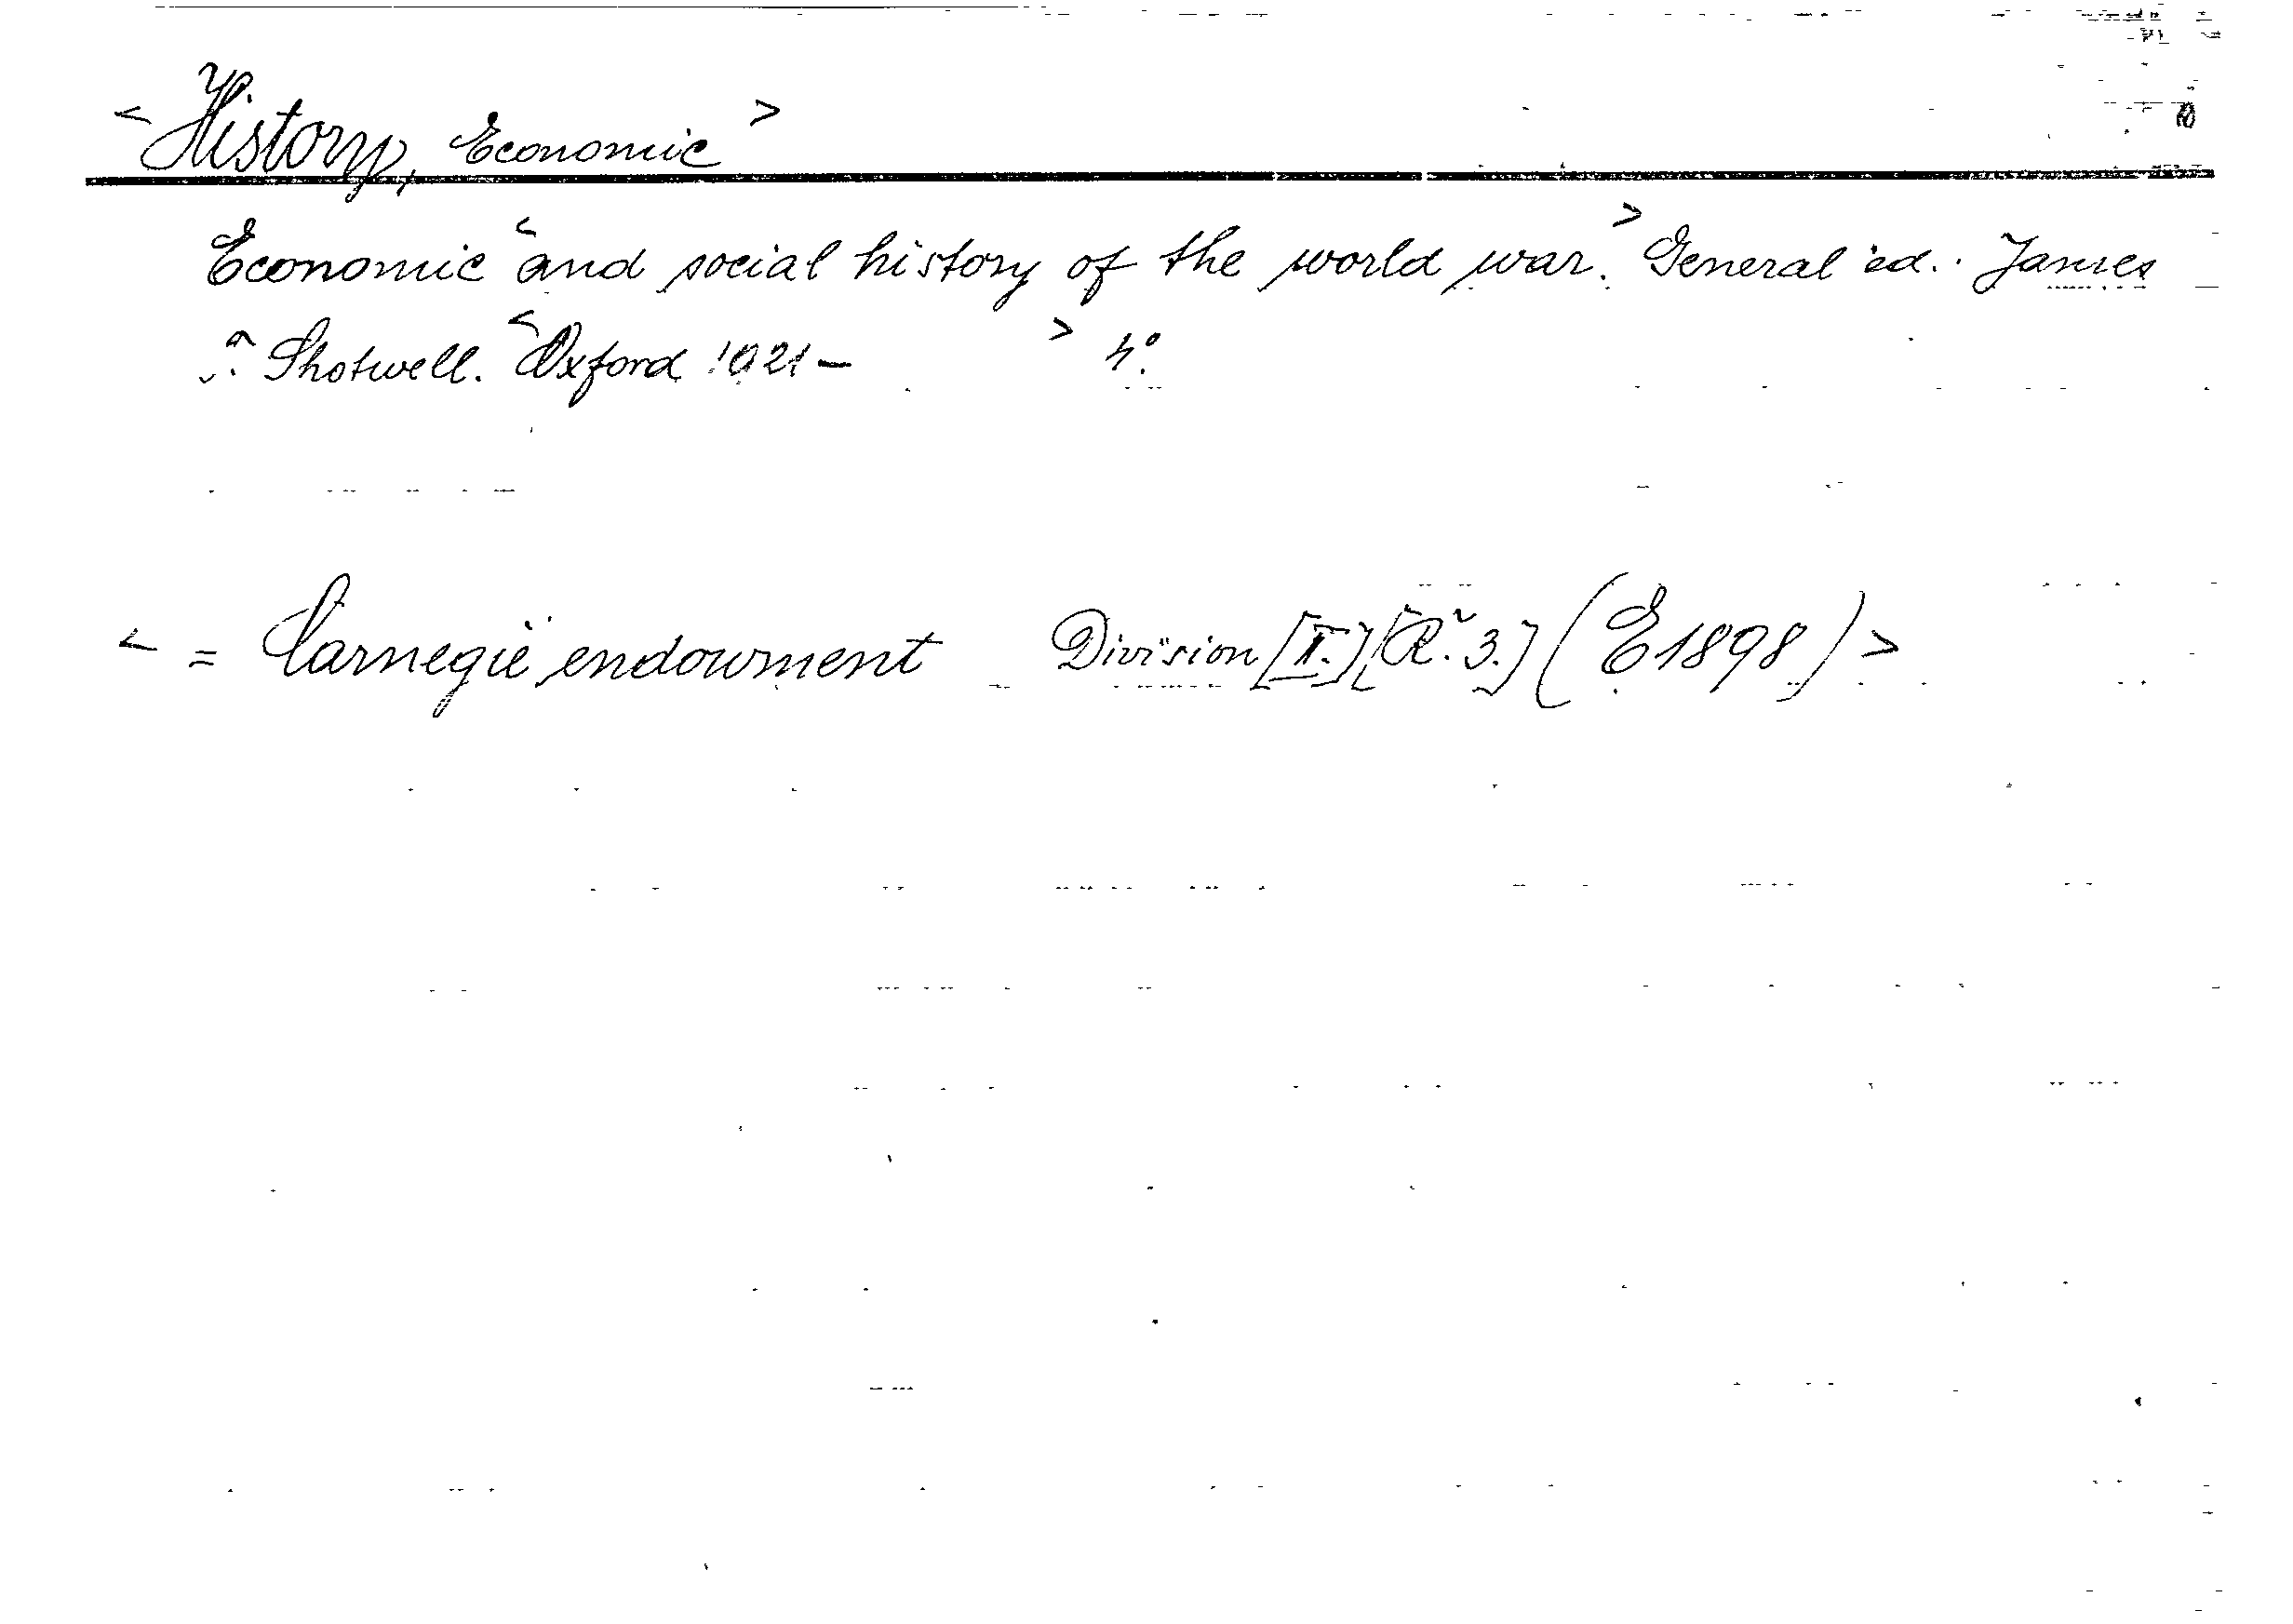 < History, Economic >
Economic < and social history of the world war. > General ed.: James
T. Shotwell. < Oxford 1921- > 4°.
< = Carnegie endowment Division [I.] [R. 3.] (E 1898) >